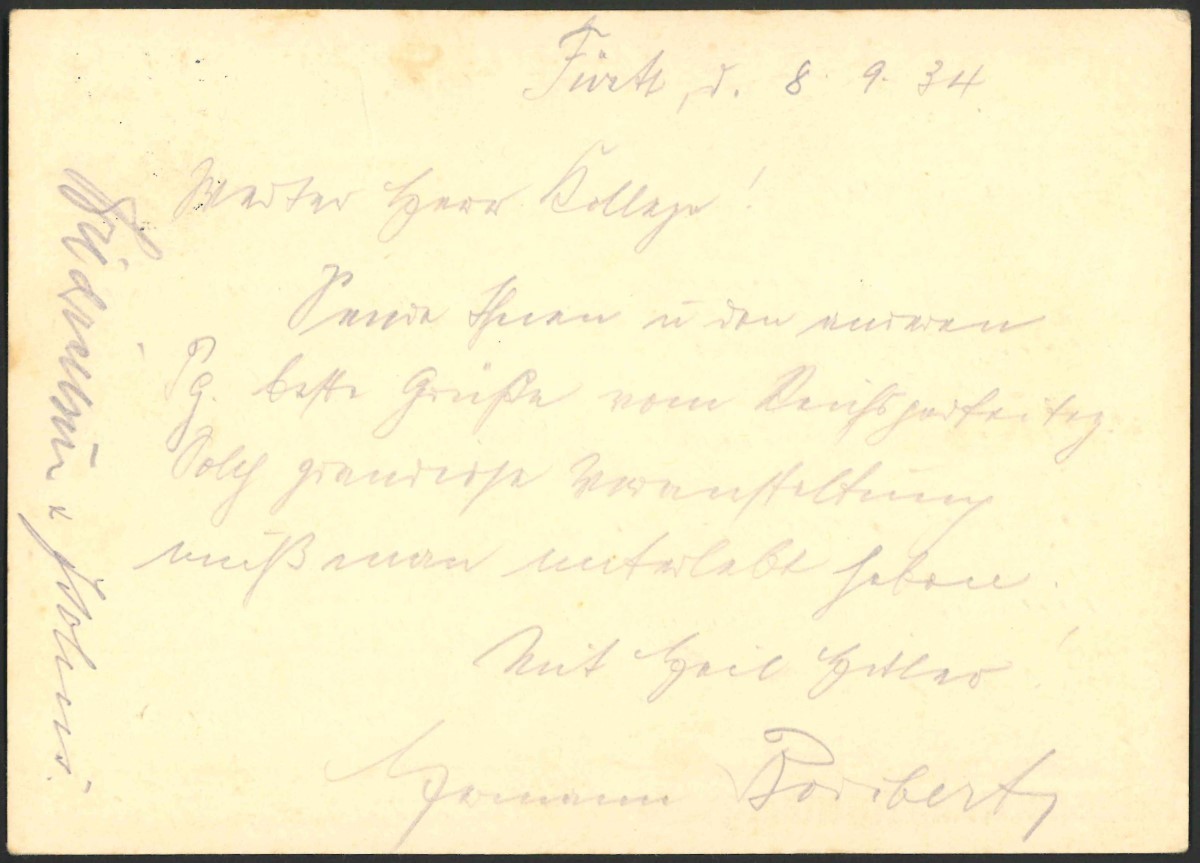 Fürth, d. 8. 9. 34.
Werter Herr Kollege!
Sende Ihnen u den anderen
Pg. beste Grüße vom Reichsparteitag.
Solch grandiose Veranstaltung
muß man miterlebt haben.
Mit Heil Hitler!
Hermann